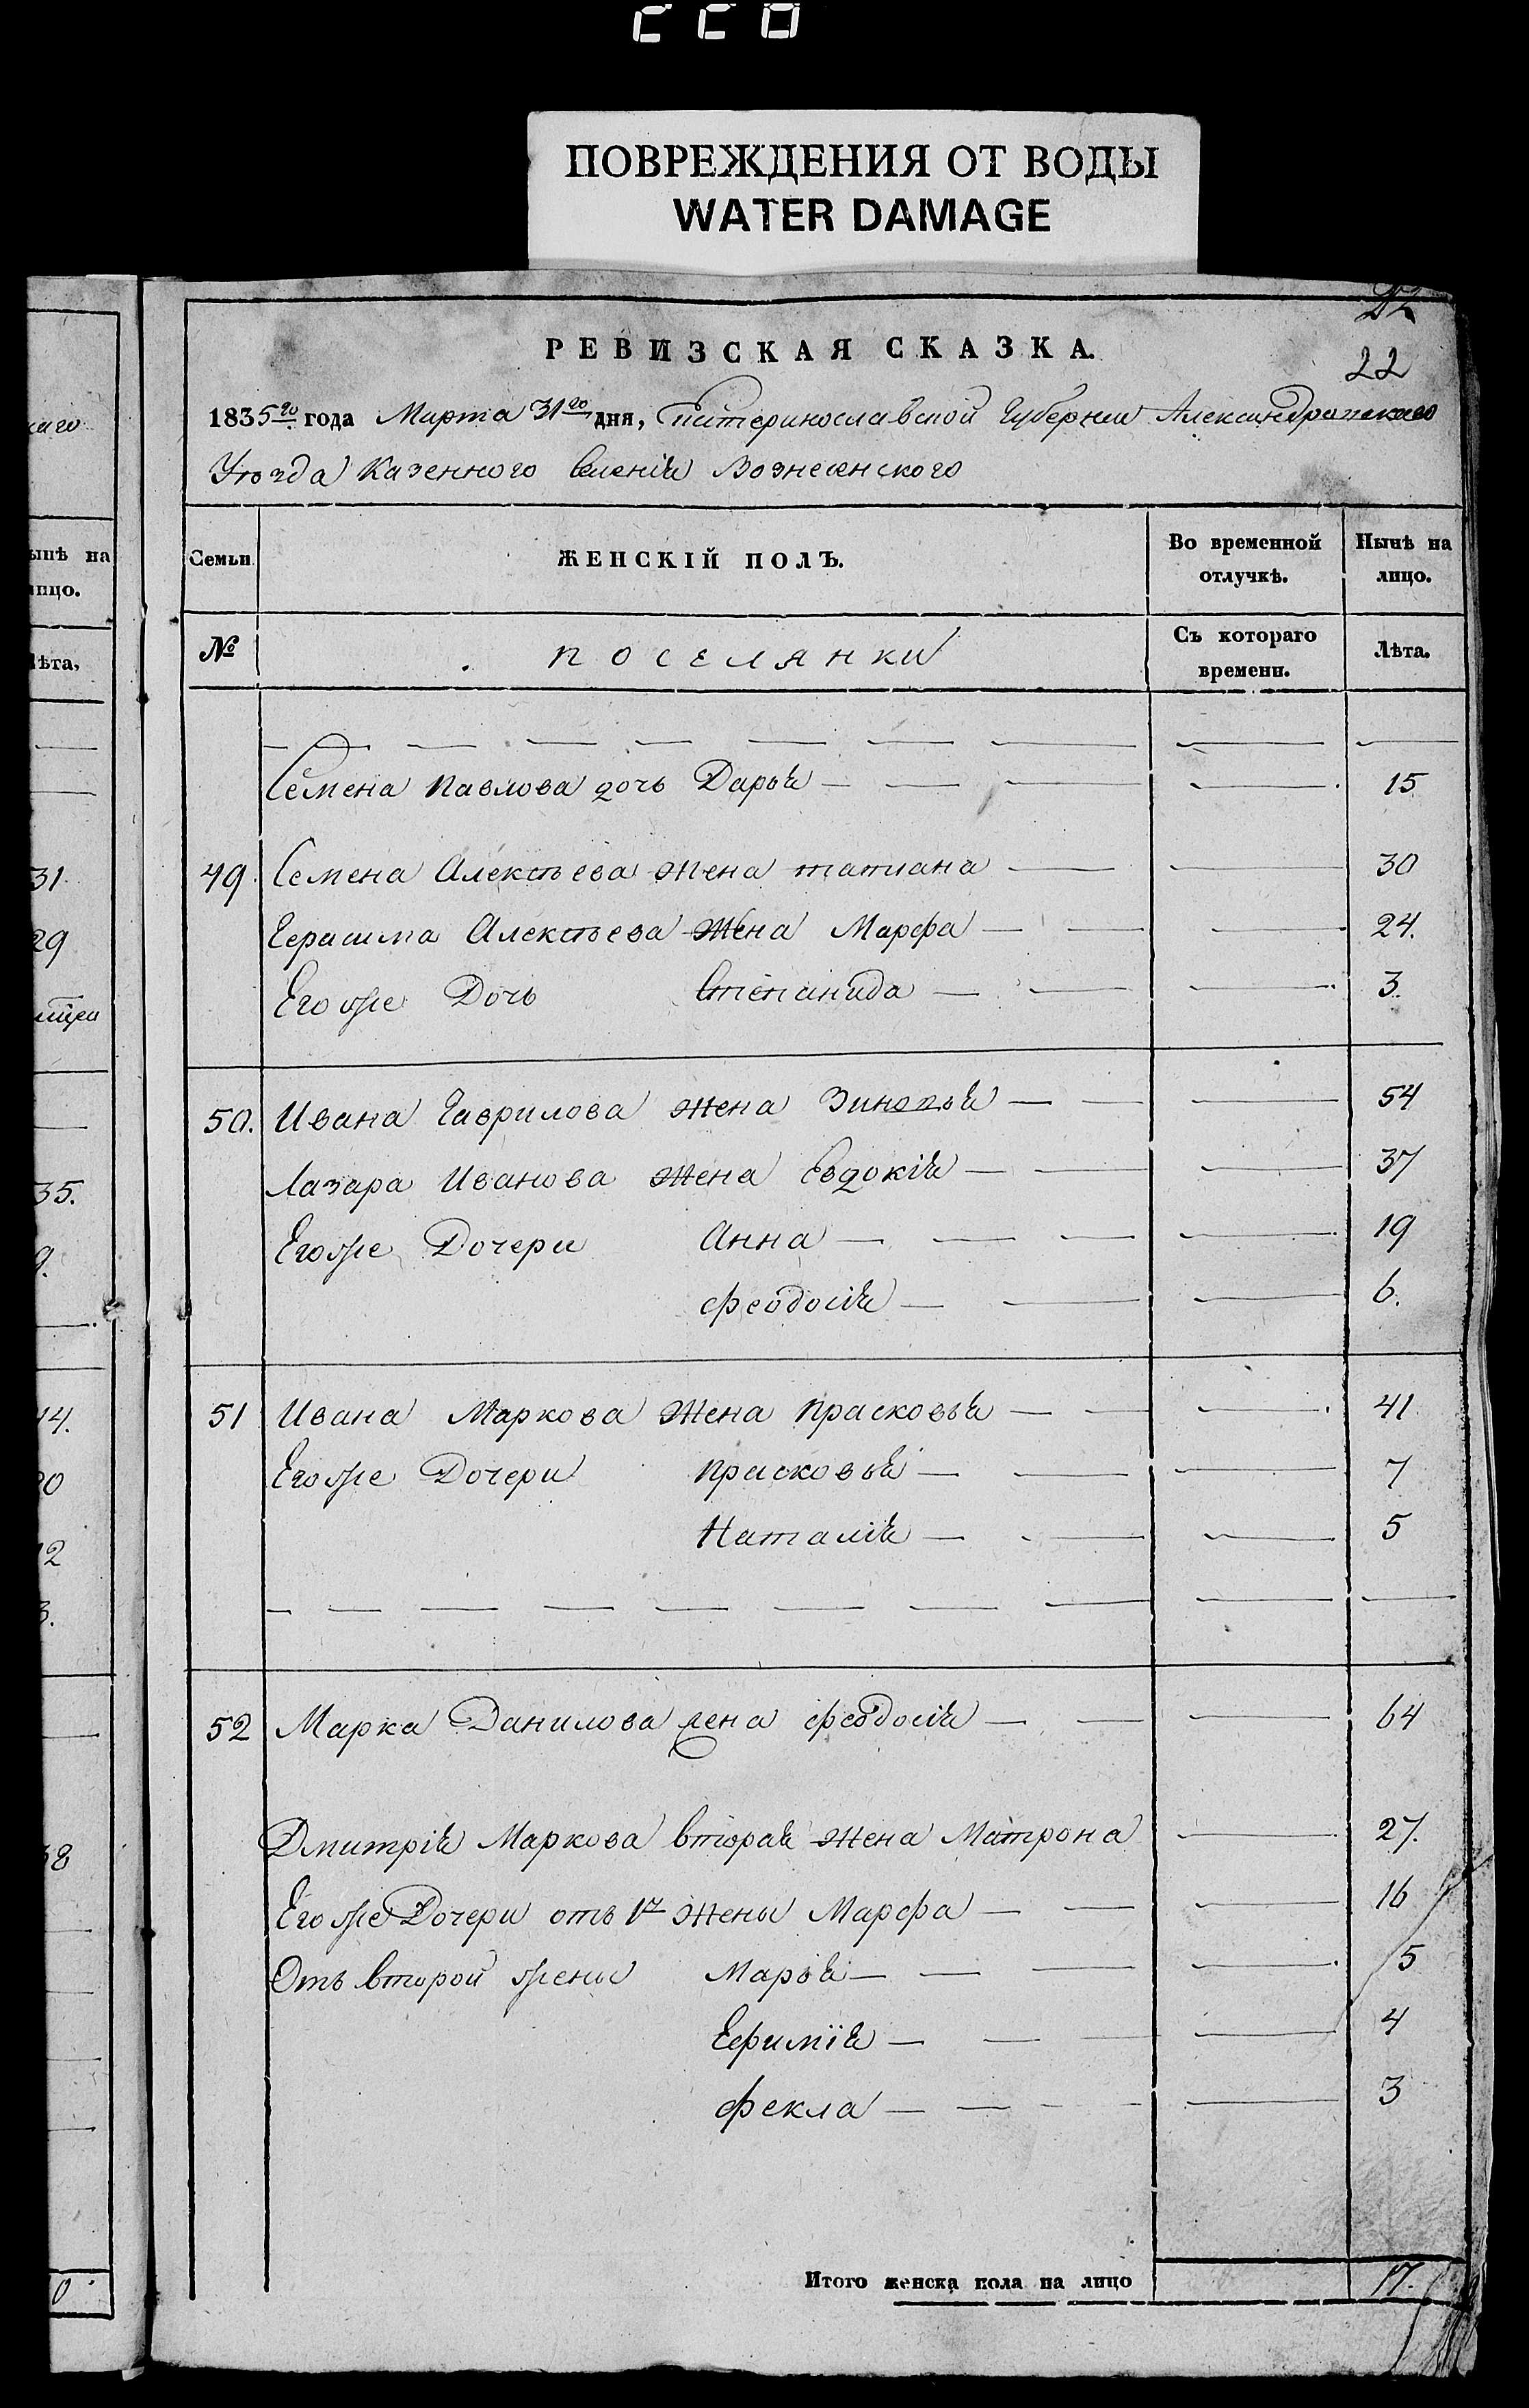 ПОВРЕЖДЕНИЯ ОТ ВОДЫ
WATER DAMAGE
22
РЕВИЗСКАЯ СКАЗКА.
22
1835го года Марта 31го дня, Екатеринославской Губернии Александровскаго
Уѣзда Казенного Селенія Вознесенского
Семьи
ЖЕНСКІЙ ПОЛЪ.
Во временной отлучкѣ.
Нынѣ на лицо.
№
ПОСЕЛЯНКИ
Съ котораго времени.
Лѣта.
Семена Павлова дочь Дарья 15
49. Семена Алексѣева жена татиана 30
Герасима Алексѣева жена Марфа 24.
Его же Дочь Степанида 3.
50. Ивана Гаврилова жена Зиновья 54
Лазара Иванова жена Евдокія 37
Его же Дочери Анна 19
Феодосія 6.
51 Ивана Маркова жена Прасковья 41
Его же Дочери Прасковья 7
Наталія 5
52 Марка Данилова жена Феодосія 64
Дмитрія Маркова вторая жена Матрона 27.
Его же Дочери отъ 1й жены Марфа 16
Отъ второй жены Марья 5
Ефимія 4
Фекла 3
Итого женска пола на лицо 17.